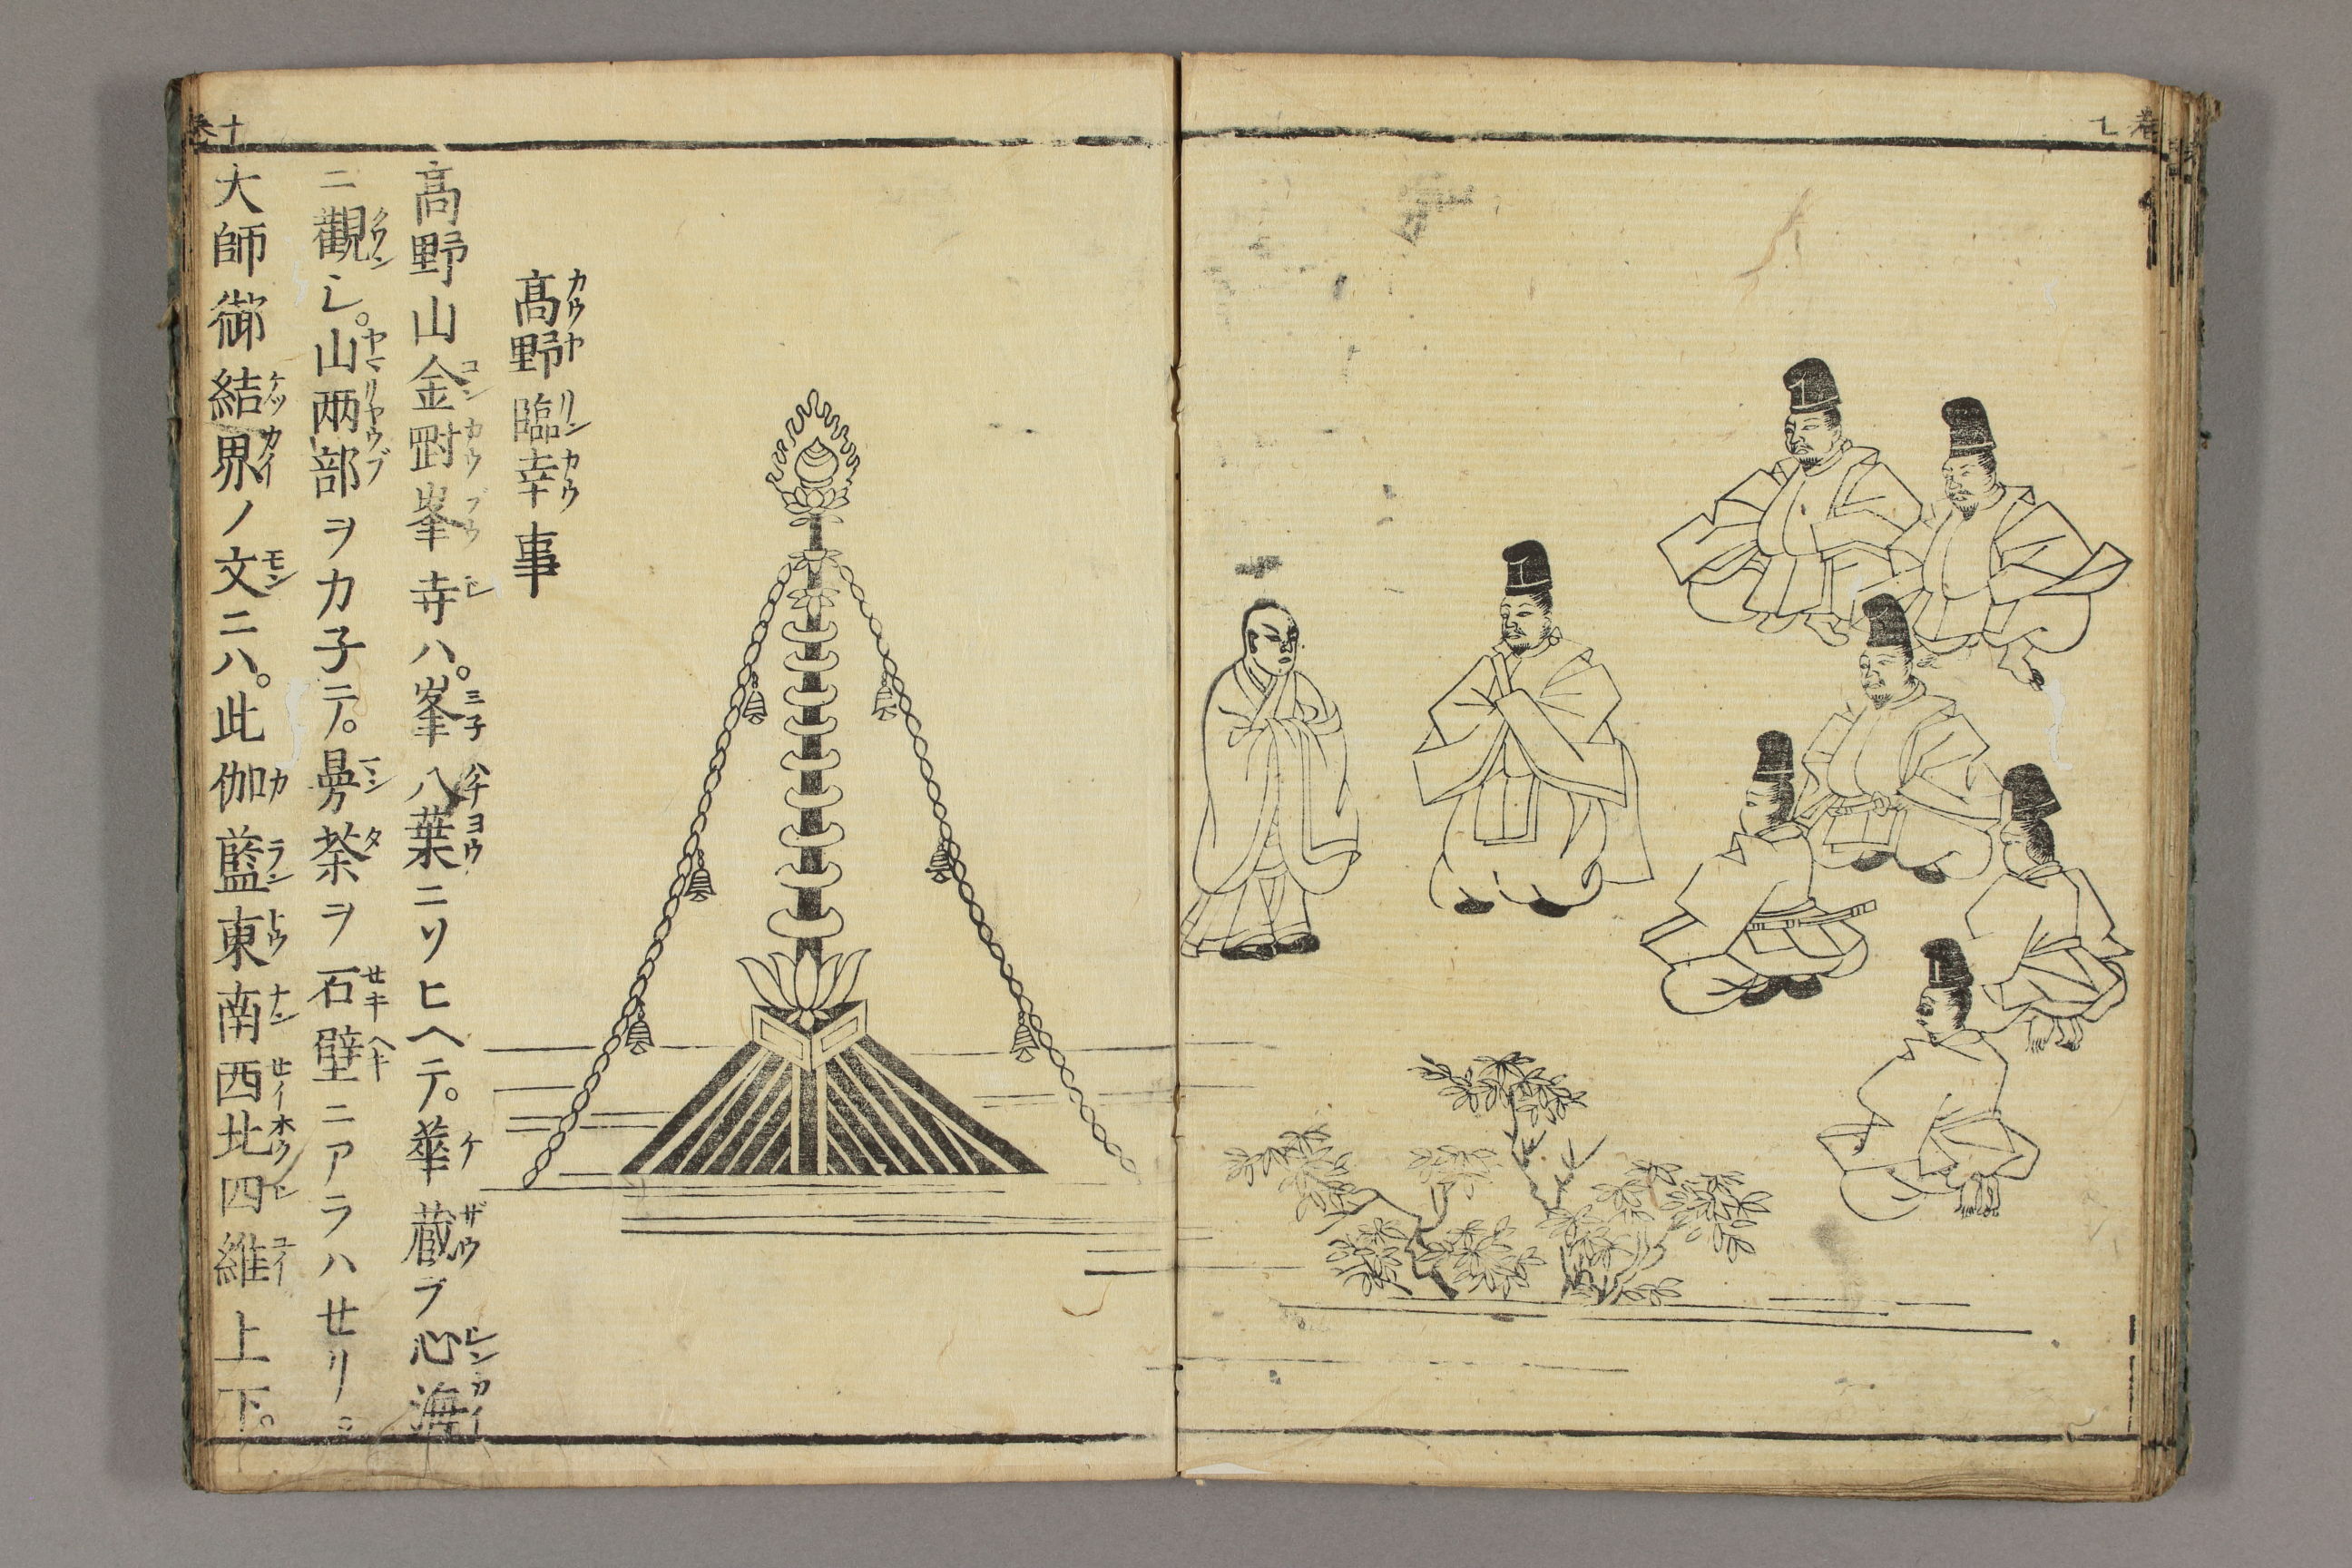 髙野臨幸事
髙野山金剛峯寺ハ。峯八葉ニソヒヘテ。華蔵ヲ心海
ニ觀シ。山両部ヲカ子テ。曼荼ヲ石壁ニアラハセリ。
大師御結界ノ文ニハ。此伽藍東南西北四維上下。